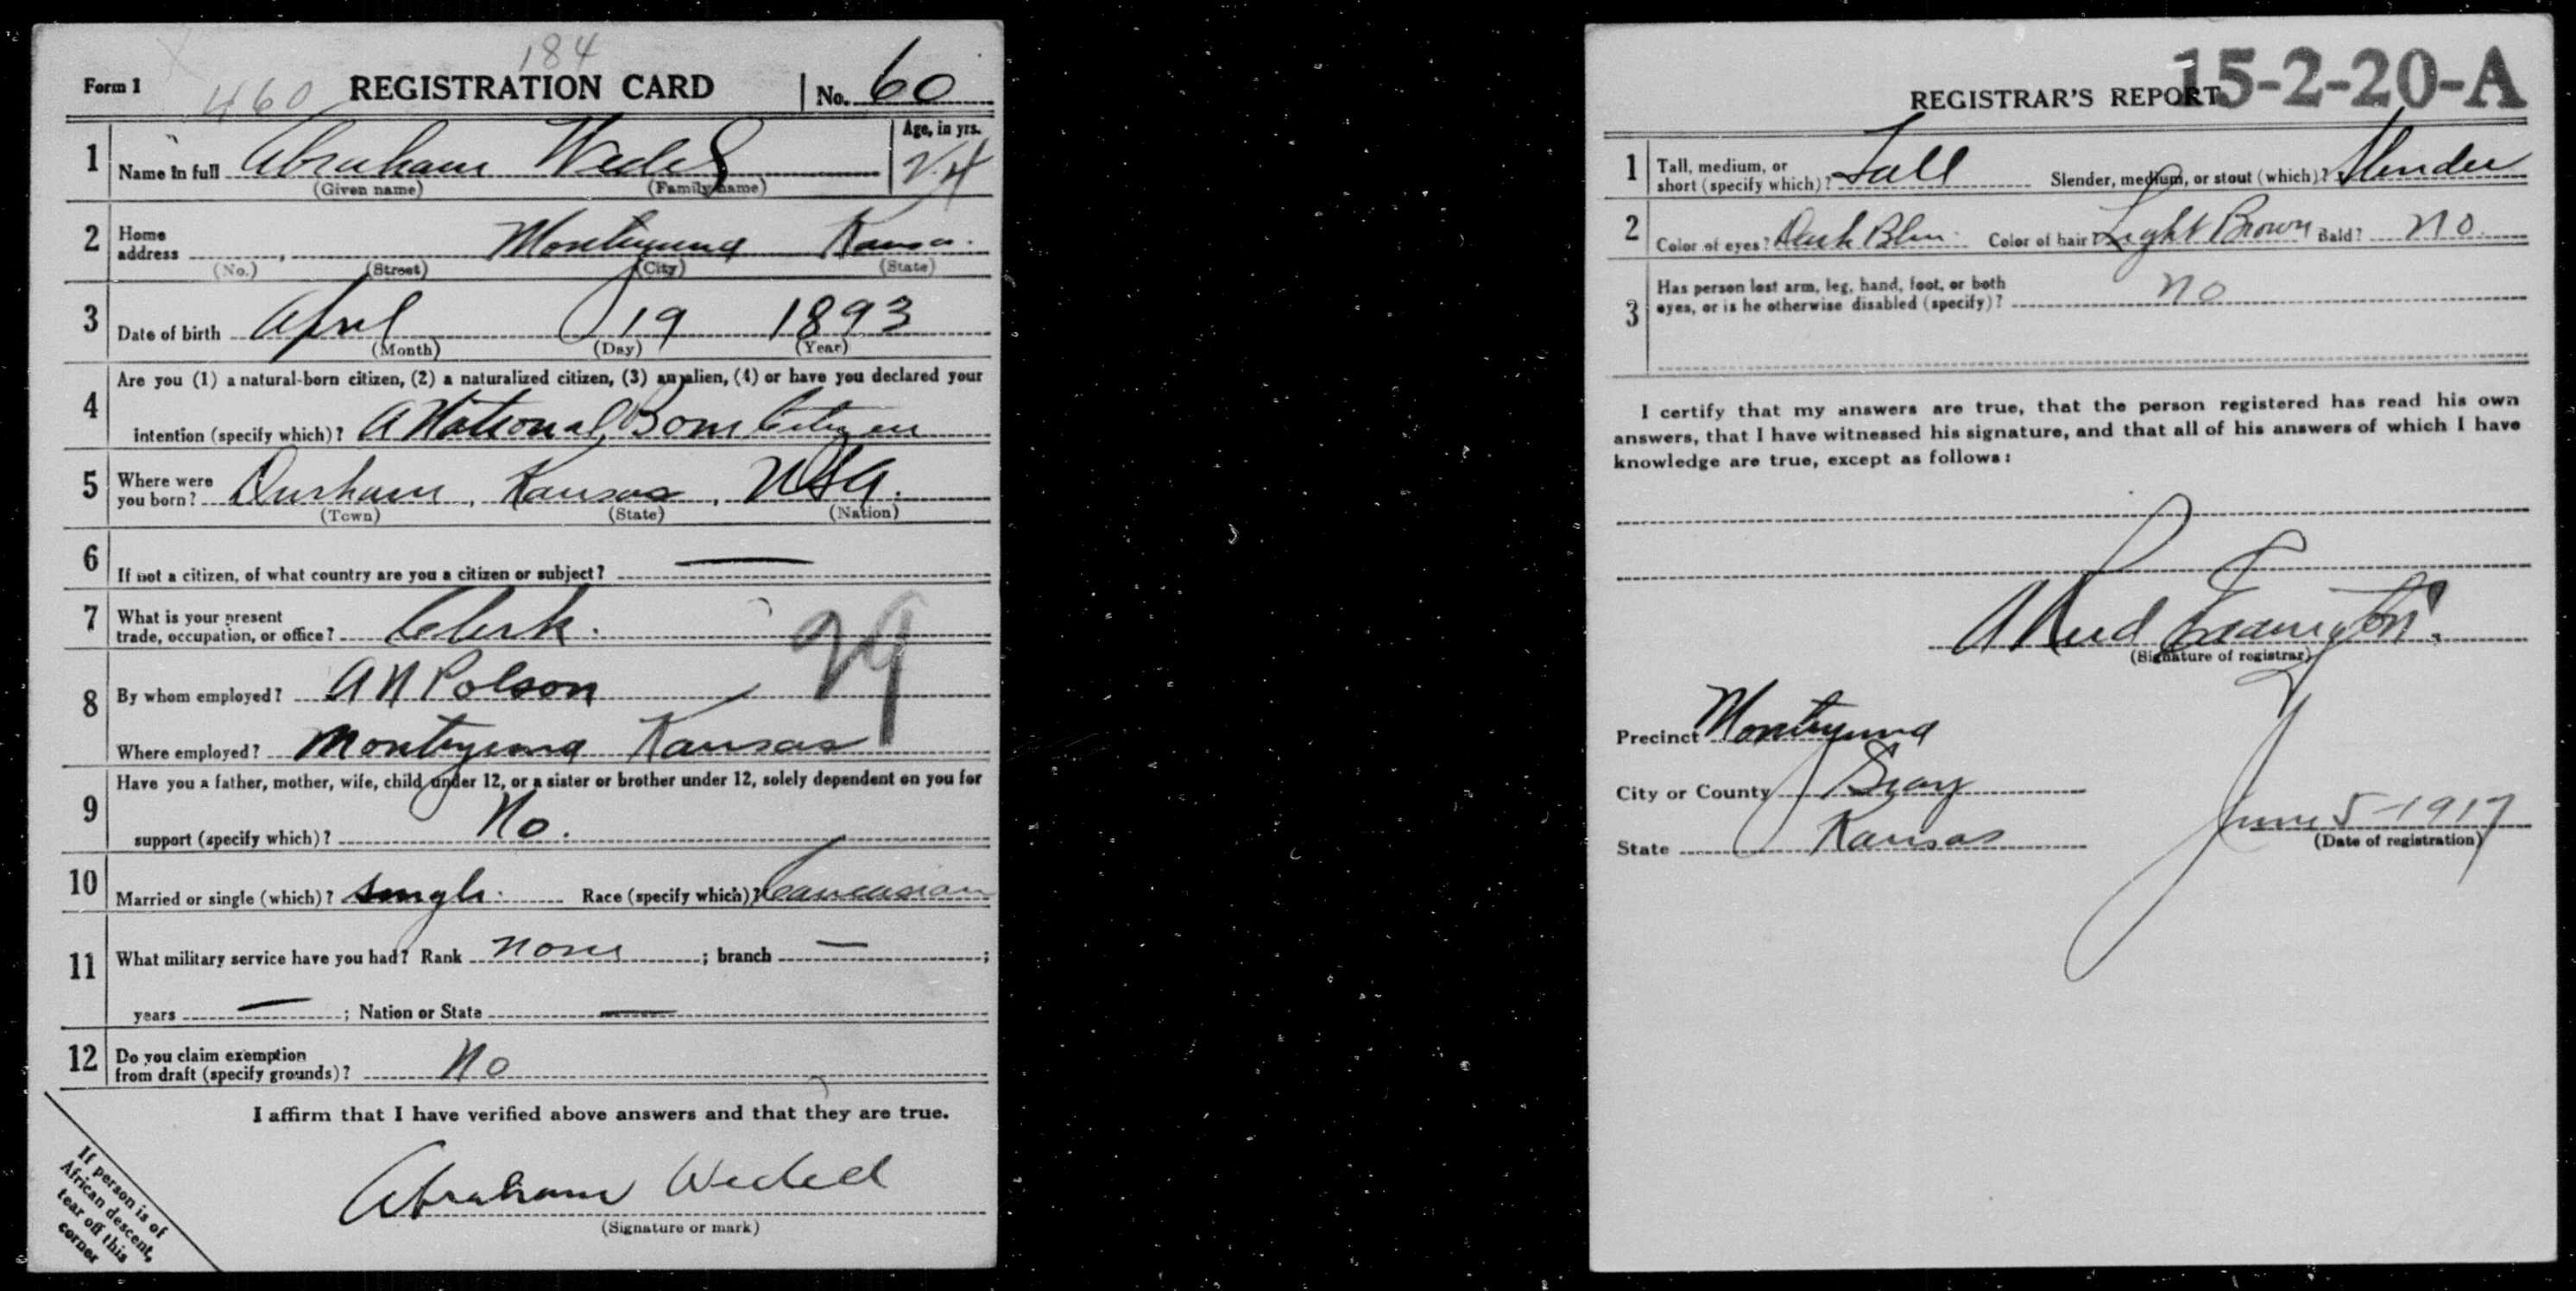 184
Form 1 460 REGISTRATION CARD No. 60
1 Name in full Abraham Wedel Age, in yrs. 24
(Given name) (Family name)
2 Home address Montezuma Kansas.
(No.) (Street) (City) (State)
3 Date of birth April 19 1893
(Month) (Day) (Year)
4 Are you (1) a natural-born citizen, (2) a naturalized citizen, (3) an alien, (4) or have you declared your
intention (specify which)? A National Born Citizen
5 Where were you born? Durham, Kansas, USA.
(Town) (State) (Nation)
6 If not a citizen, of what country are you a citizen or subject? —
7 What is your present trade, occupation, or office? Clerk.
29
8 By whom employed? A N Polson
Where employed? Montezuma Kansas
9 Have you a father, mother, wife, child under 12, or a sister or brother under 12, solely dependent on you for
support (specify which)? No.
10 Married or single (which)? Single. Race (specify which)? Caucasian
11 What military service have you had? Rank None ; branch — ;
years — ; Nation or State —
12 Do you claim exemption from draft (specify grounds)? No
I affirm that I have verified above answers and that they are true.
Abraham Wedel
(Signature or mark)
If person is of
African descent,
tear off this
corner
15-2-20-A
REGISTRAR'S REPORT
1 Tall, medium, or short (specify which)? Tall Slender, medium, or stout (which)? Slender
2 Color of eyes? Dark Blue Color of hair Light Brown Bald? No.
3 Has person lost arm, leg, hand, foot, or both
eyes, or is he otherwise disabled (specify)? No
I certify that my answers are true, that the person registered has read his own
answers, that I have witnessed his signature, and that all of his answers of which I have
knowledge are true, except as follows:
(Signature of registrar)
Precinct Montezuma
City or County Gray
State Kansas
June 5-1917
(Date of registration)